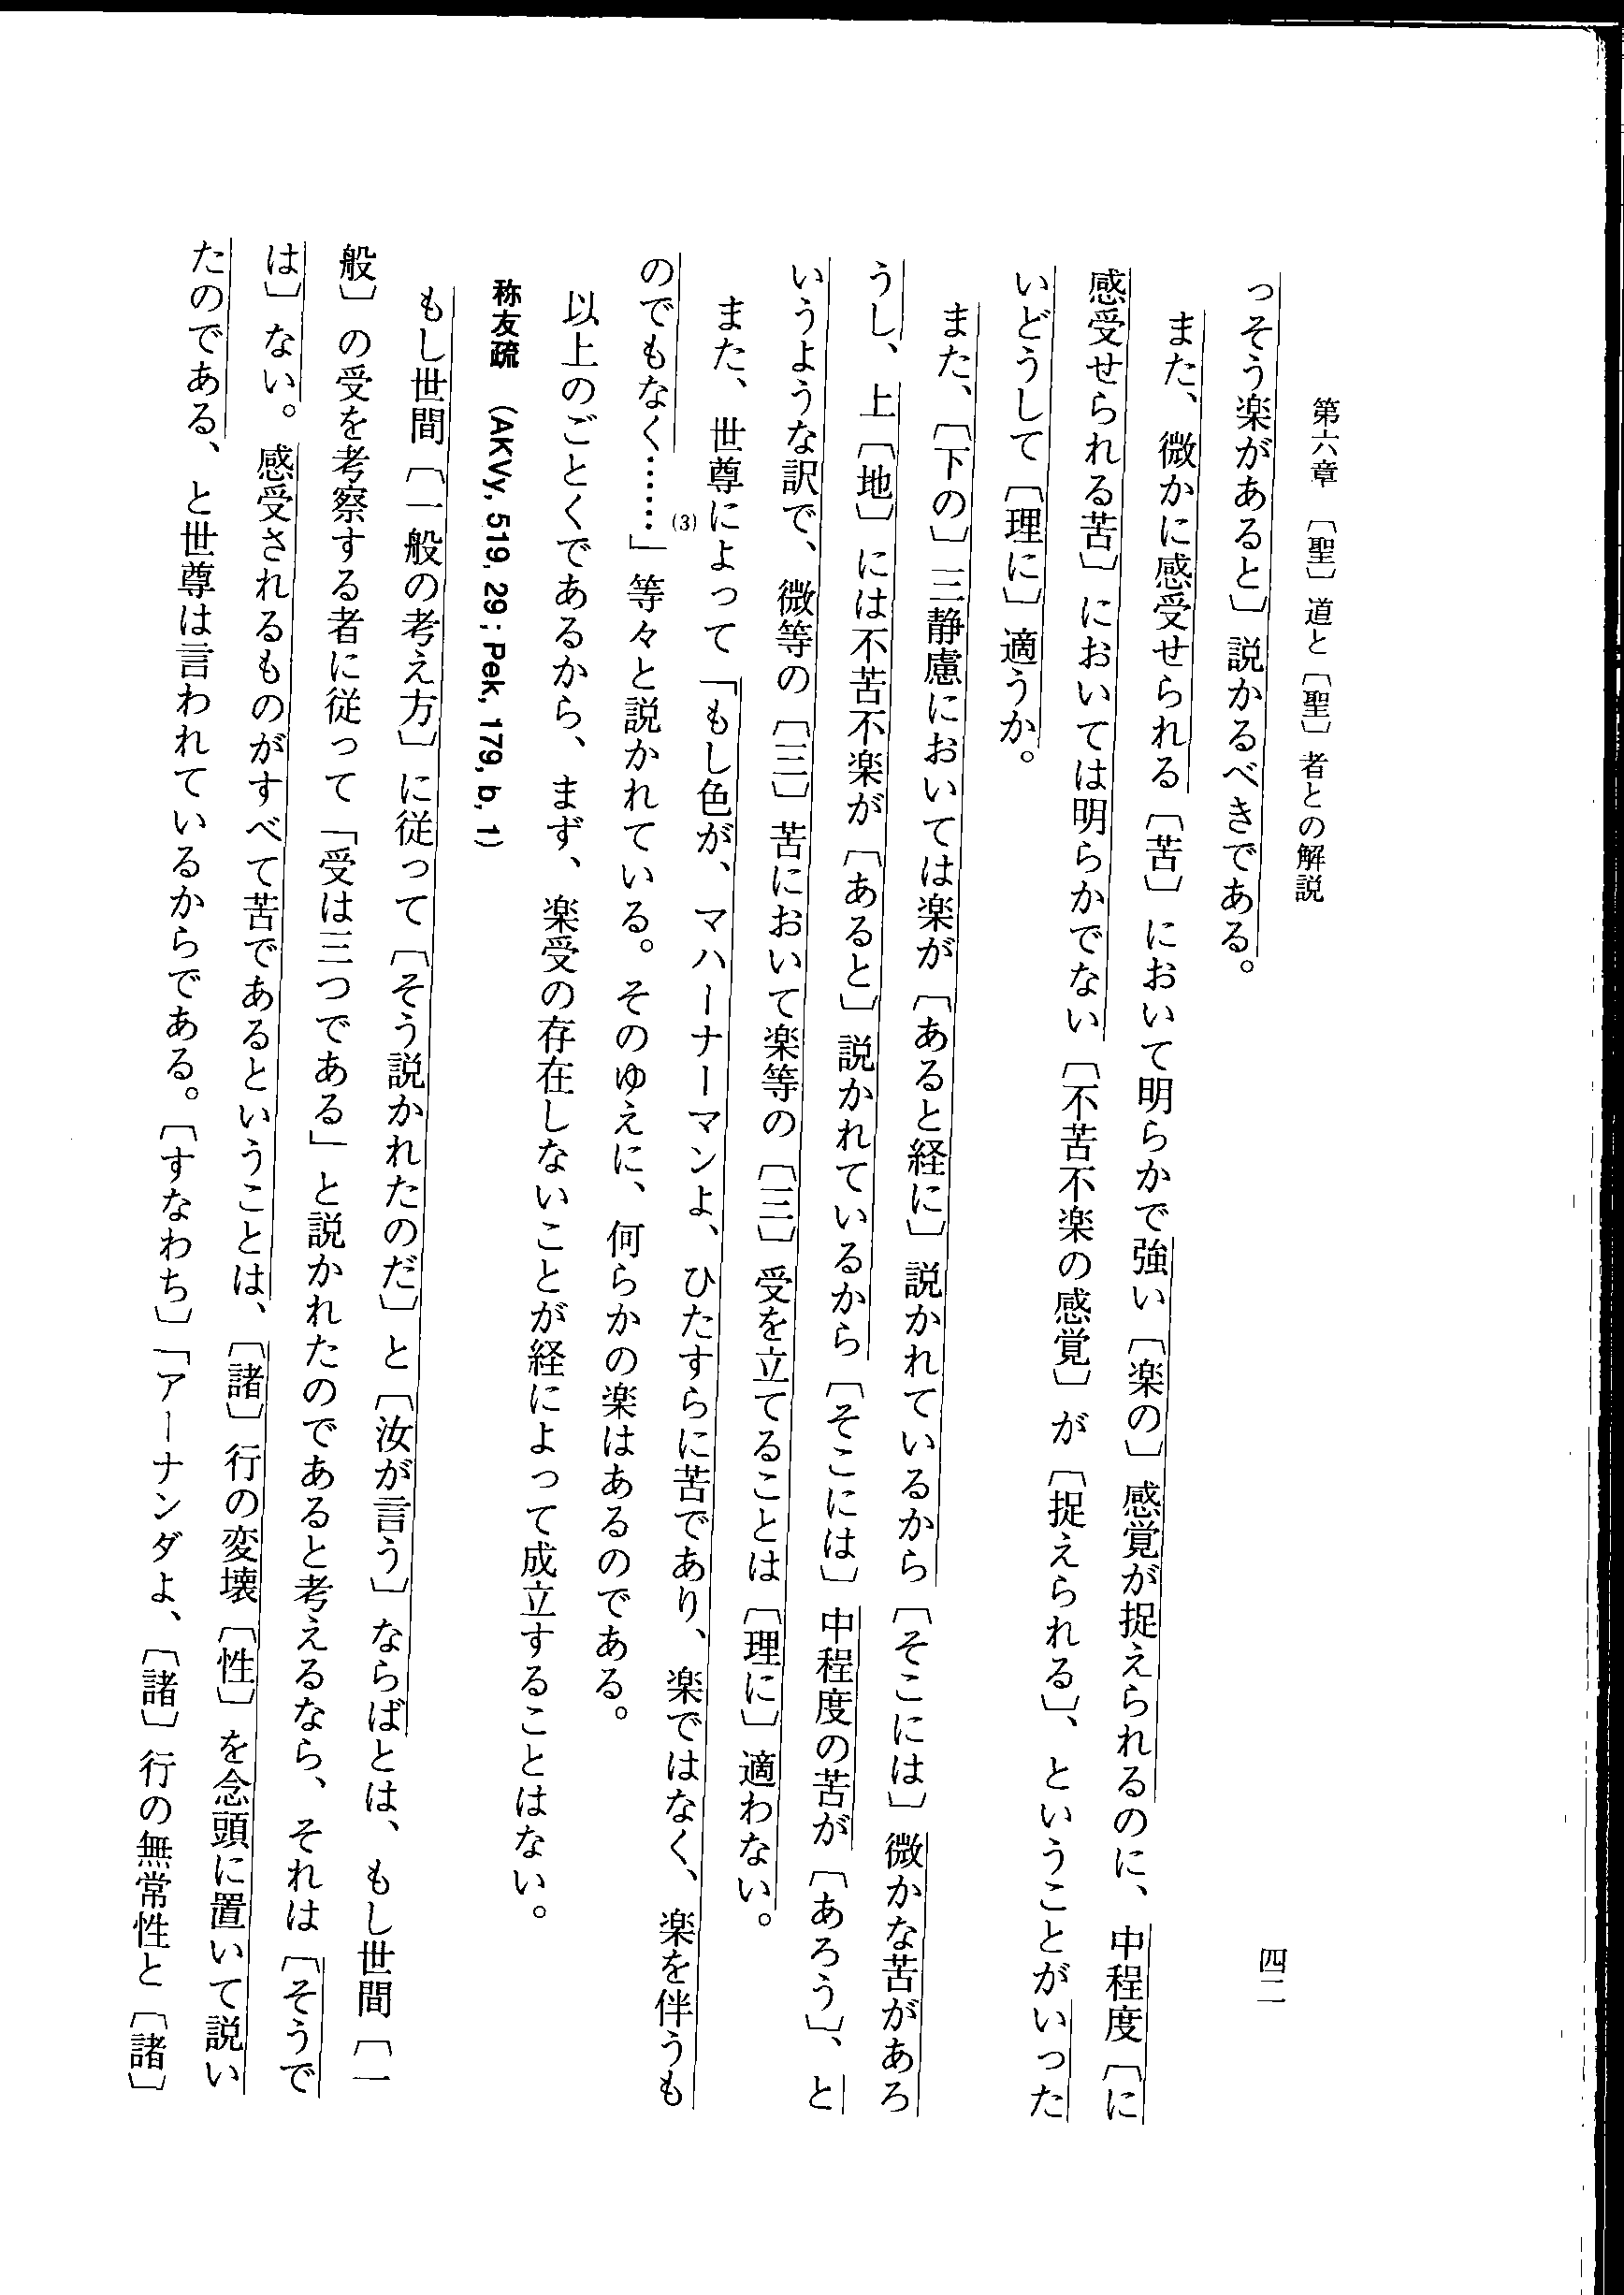 第六章　〔聖〕道と〔聖〕者との解説
四二
っそう楽があると〕説かるべきである。
また、微かに感受せられる〔苦〕において明らかで強い〔楽の〕感覚が捉えられるのに、中程度〔に
感受せられる苦〕においては明らかでない〔不苦不楽の感覚〕が〔捉えられる〕、ということがいった
いどうして〔理に〕適うか。
また、〔下の〕三静慮においては楽が〔あると経に〕説かれているから〔そこには〕微かな苦があろ
うし、上〔地〕には不苦不楽が〔あると〕説かれているから〔そこには〕中程度の苦が〔あろう〕、と
いうような訳で、微等の〔三〕苦において楽等の〔三〕受を立てることは〔理に〕適わない。
また、世尊によって「もし色が、マハーナーマンよ、ひたすらに苦であり、楽ではなく、楽を伴うも
のでもなく……」(3)等々と説かれている。そのゆえに、何らかの楽はあるのである。
以上のごとくであるから、まず、楽受の存在しないことが経によって成立することはない。
称友疏　(AKVy, 519, 29; Pek, 179, b, 1)
もし世間〔一般の考え方〕に従って〔そう説かれたのだ〕と〔汝が言う〕ならばとは、もし世間〔一
般〕の受を考察する者に従って「受は三つである」と説かれたのであると考えるなら、それは〔そうで
は〕ない。感受されるものがすべて苦であるということは、〔諸〕行の変壊〔性〕を念頭に置いて説い
たのである、と世尊は言われているからである。〔すなわち〕「アーナンダよ、〔諸〕行の無常性と〔諸〕